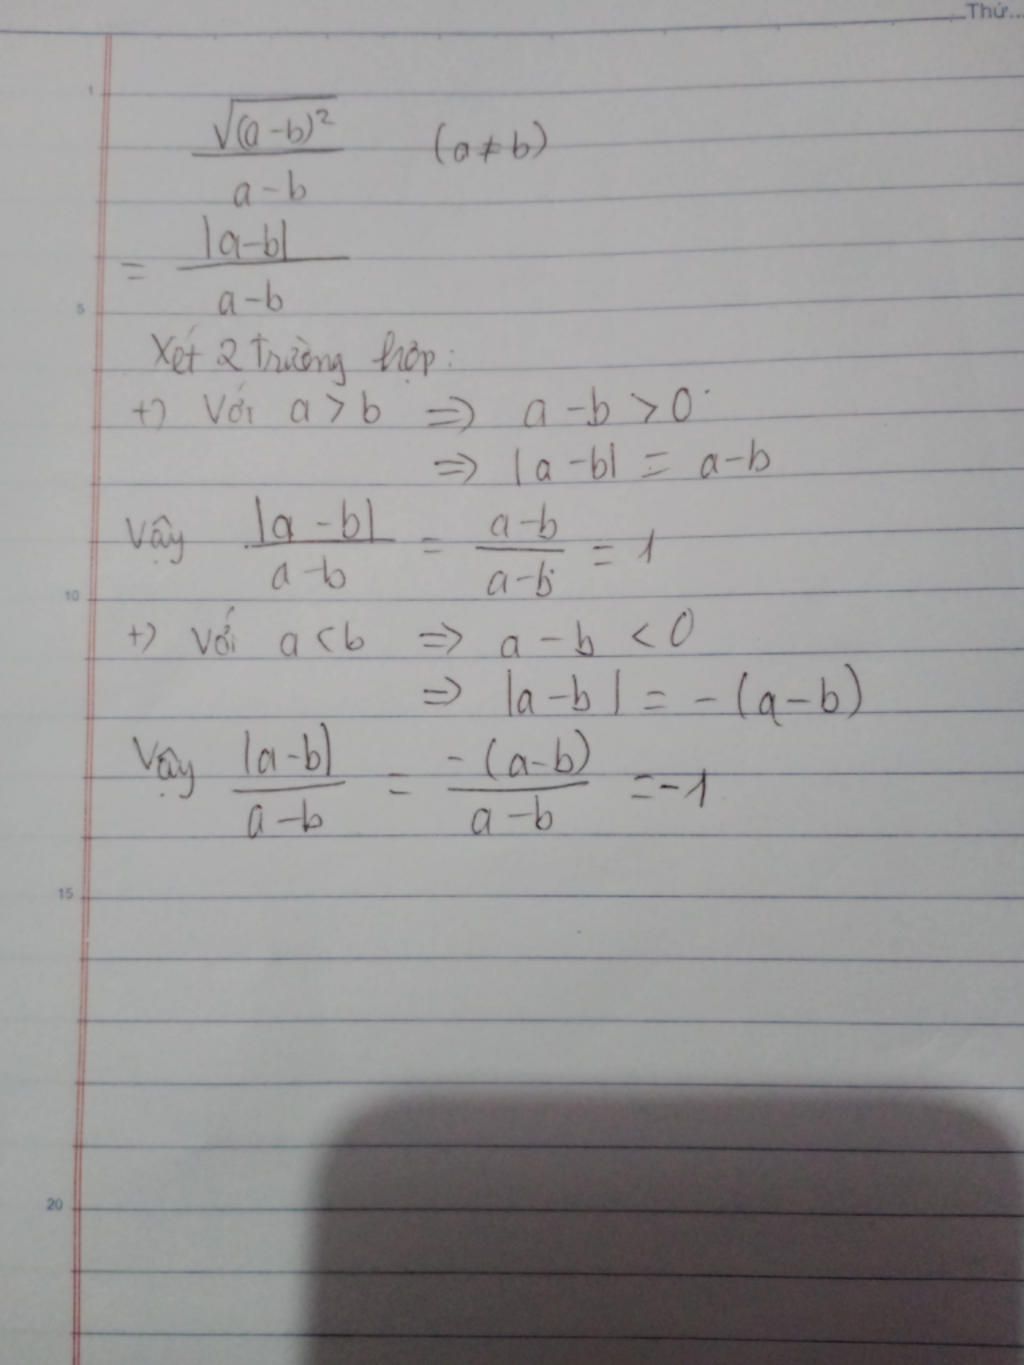 Thứ...
1
√(a-b)² / a-b (a≠b)
= |a-b| / a-b
5
Xét 2 trường hợp:
+) Với a > b => a-b > 0
=> |a-b| = a-b
Vậy |a-b| / a-b = a-b / a-b = 1
10
+) Với a < b => a-b < 0
=> |a-b| = -(a-b)
Vậy |a-b| / a-b = -(a-b) / a-b = -1
15
20